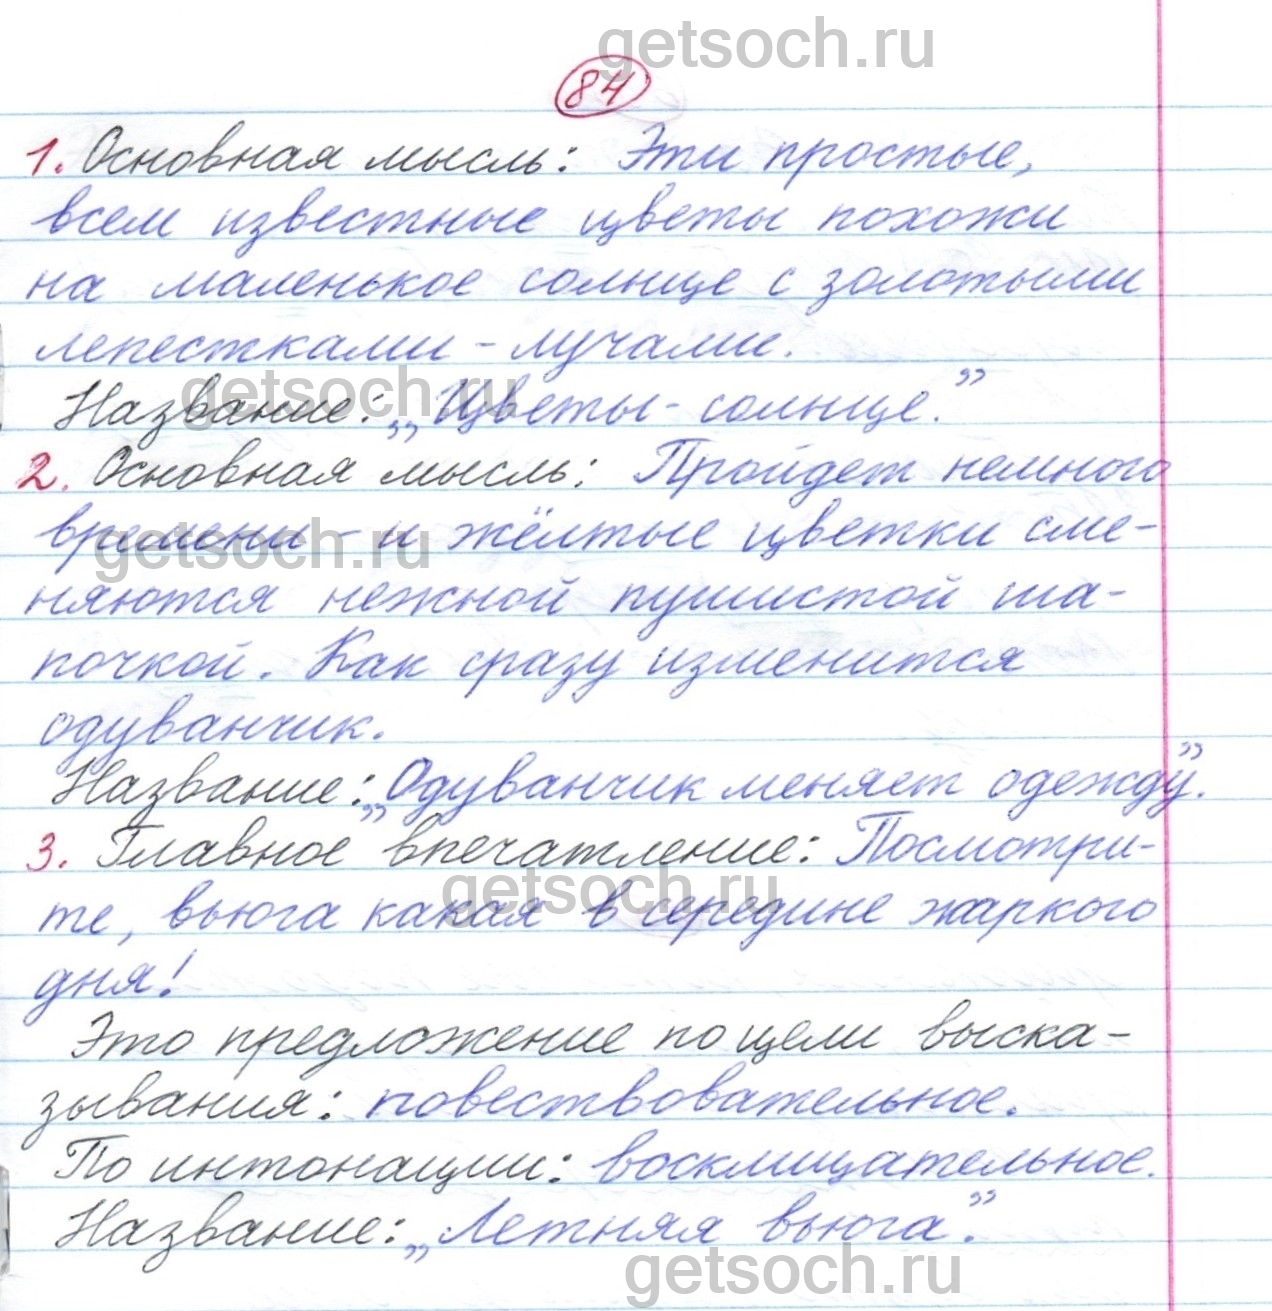 getsoch.ru
84
1. Основная мысль: Эти простые,
всем известные цветы похожи
на маленькое солнце с золотыми
лепестками - лучами.
getsoch.ru
Название: „Цветы - солнце.”
2. Основная мысль: Пройдет немного
времени - и жёлтые цветки сме-
getsoch.ru
няются нежной пушистой ша-
почкой. Как сразу изменится
одуванчик.
Название: „Одуванчик меняет одежду”.
3. Главное впечатление: Посмотри-
getsoch.ru
те, вьюга какая в середине жаркого
дня!
Это предложение по цели выска-
зывания: повествовательное.
По интонации: восклицательное.
Название: „Летняя вьюга”.
getsoch.ru